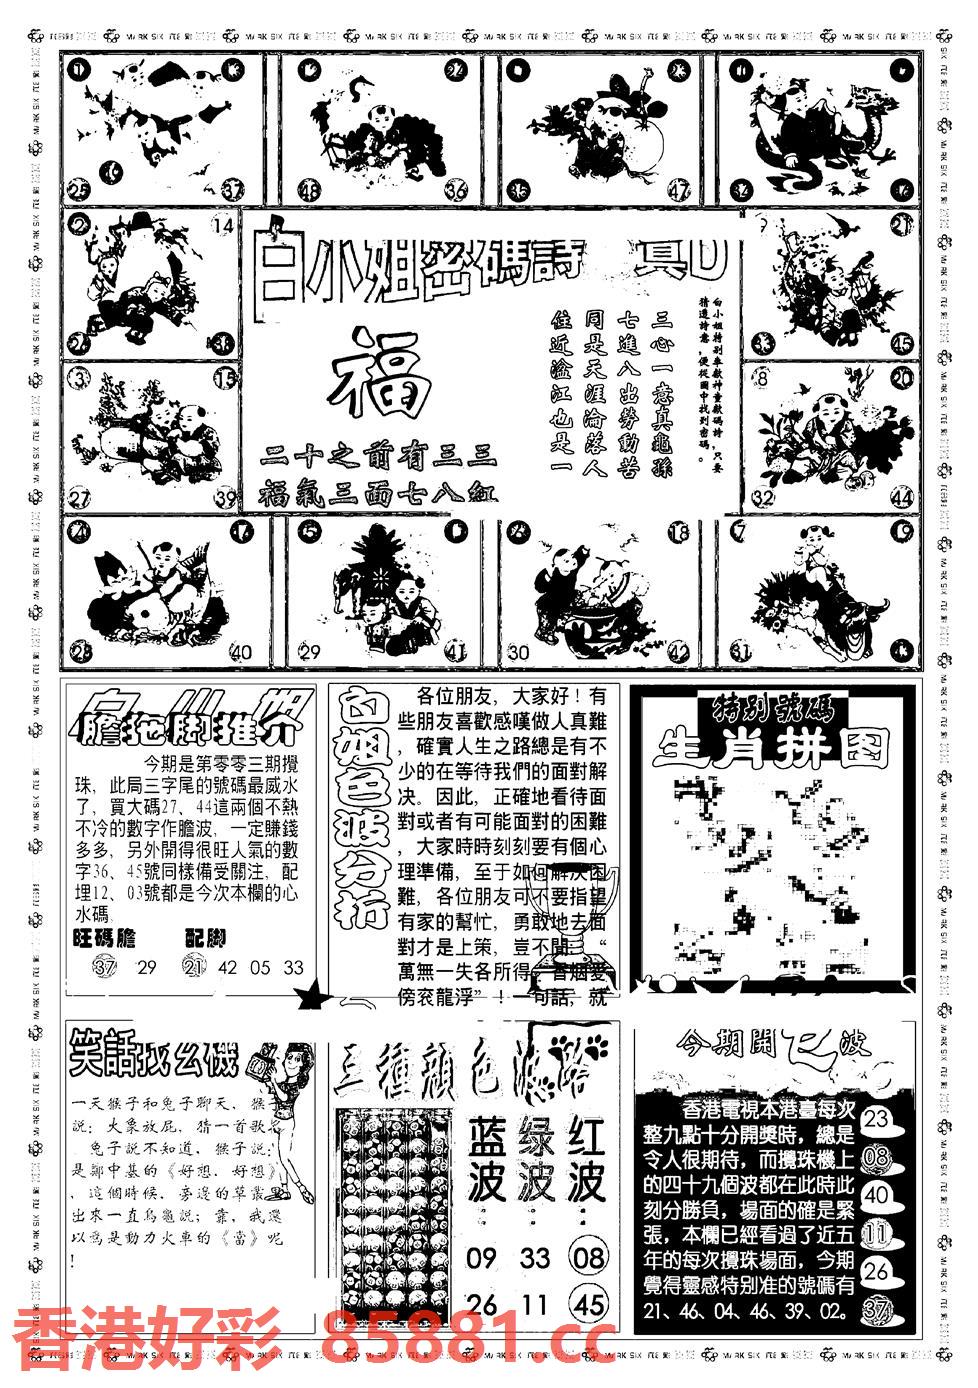 25
37
48
36
35
47
2
14
26
38
白小姐密碼詩
真D
福
二十之前有三三
福氣三面七八紅
白小姐特别奉獻神童獻碼詩,只要
猜透詩意,便從圖中找到密碼。
三心一意真龜孫
七進八出勞動苦
同是天涯淪落人
住近溢江也是一
9
21
33
45
3
15
27
39
8
20
32
44
4
28
40
5
29
41
18
30
42
7
19
31
膽拖脚推介
今期是第零零三期攪
珠,此局三字尾的號碼最威水
了,買大碼27、44這兩個不熱
不冷的數字作膽波,一定賺錢
多多,另外開得很旺人氣的數
字36、45號同樣備受關注,配
埋12、03號都是今次本欄的心
水碼.
旺碼膽 配脚
37 29 21 42 05 33
白姐色波分析
各位朋友,大家好!有
些朋友喜歡感嘆做人真難
,確實人生之路總是有不
少的在等待我們的面對解
决。因此,正確地看待面
對或者有可能面對的困難
,大家時時刻刻要有個心
理準備,至于如何解决困
難,各位朋友可不要指望
有家的幫忙,勇敢地去面
對才是上策,豈不聞:“
萬無一失各所得,百烟愛
傍衮龍浮”!一句話,就
特别號碼
生肖拼图
笑話找玄機
一天猴子和兔子聊天,猴子
說:大象放屁,猜一首歌名
兔子說不知道,猴子說:
是鄒中基的《好想,好想》
,這個時候,旁邊的草叢里
出來一直烏龜説:靠,我還
以爲是動力火車的《當》呢
!
三種顔色波路
蓝波: 绿波: 红波:
09 33 08
26 11 45
今期開 波
香港電視本港臺每次
整九點十分開獎時,總是
令人很期待,而攪珠機上
的四十九個波都在此時此
刻分勝負,場面的確是緊
張,本欄已經看過了近五
年的每次攪珠場面,今期
覺得靈感特别准的號碼有
21、46、04、46、39、02。
23
08
40
11
26
37
香港好彩 85881.cc